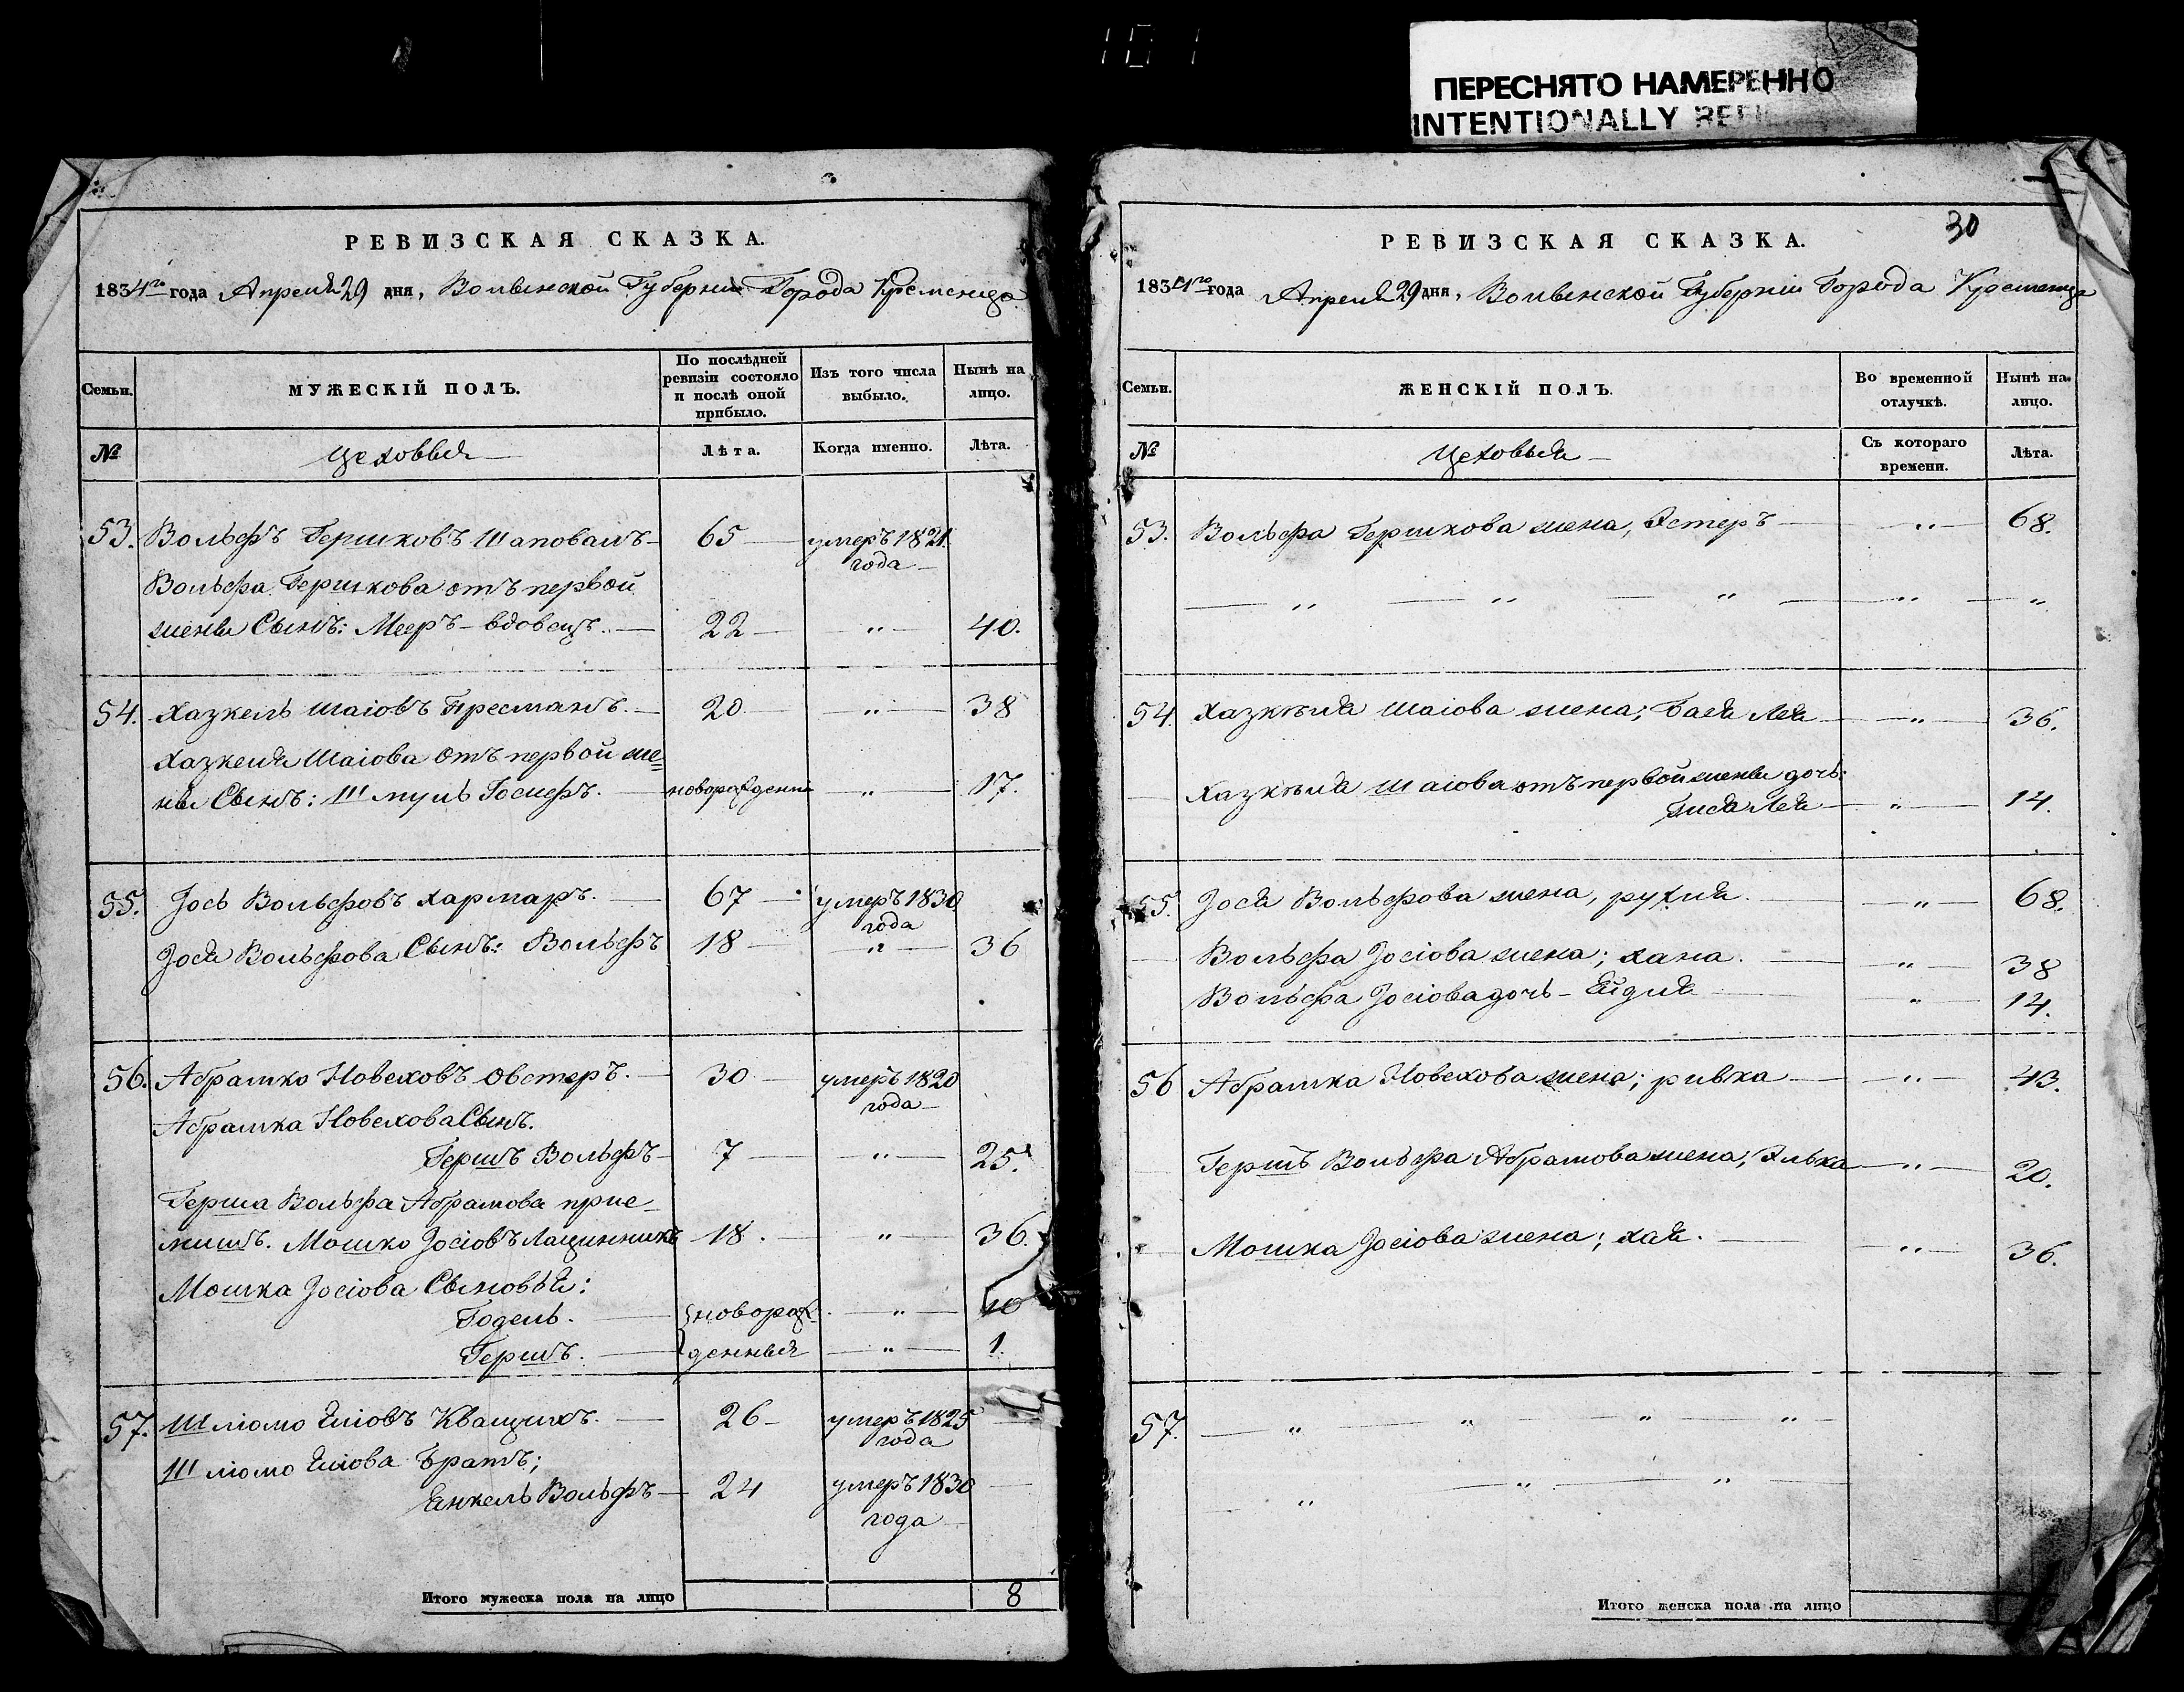 101
ПЕРЕСНЯТО НАМЕРЕННО
INTENTIONALLY
РЕВИЗСКАЯ СКАЗКА.
1834го года Апреля 29 дня, Волынской Губерніи Города Кременца
Семьи.
МУЖЕСКІЙ ПОЛЪ.
По послѣдней ревизіи состояло и послѣ оной прибыло.
Изъ того числа выбыло.
Нынѣ на лицо.
№
Цеховыя
Лѣта.
Когда именно.
Лѣта.
53. Вольфъ Гершковъ Шаповалъ 65 умеръ 1821
года
Вольфа Гершкова отъ первой
жены Сынъ: Мееръ - вдовецъ. 22 " 40.
54. Хазкель Шаіовъ Пресманъ. 20 " 38
Хазкеля Шаіова отъ первой же=
ны Сынъ: Шмуль Іосифъ. новорожденній " 17.
55. Іось Вольфовъ Хармаръ. 67 умеръ 1830
года
Іося Вольфова Сынъ: Вольфъ 18 " 36
56. Абрашко Новеховъ Овстеръ. 30 умеръ 1820
года
Абрашка Новехова Сынъ.
Гершъ Вольфъ 7 " 25.
Герша Вольфа Абрамова прие-
мишъ. Мошко Іосіовъ Лащинникъ 18. " 36.
Мошка Іосіова Сыновья:
Годель. новорож- " 10
Гершъ. денныя " 1
57. Шлюмо Еліовъ Кващукъ. 26 умеръ 1825
года
Шлюмо Еліова братъ;
Енкель Вольфъ 24 умеръ 1830
года
Итого мужеска пола на лицо 8
30
РЕВИЗСКАЯ СКАЗКА.
1834го года Апреля 29 дня, Волынской Губерніи Города Кременца
Семьи.
ЖЕНСКІЙ ПОЛЪ.
Во временной отлучкѣ.
Нынѣ на лицо.
№
Цеховыя
Съ котораго времени.
Лѣта.
53. Вольфа Гершкова жена, Эстеръ " 68.
" " " " "
54. Хазкѣля Шаіова жена; Бася Лея " 36.
Хазкѣля Шаіова отъ первой жены дочь:
Гися Лея " 14.
55. Іося Вольфова жена, рухля. " 68.
Вольфа Іосіова жена; хана. " 38
Вольфа Іосіова дочь - Ейдля " 14.
56 Абрашка Новехова жена; ривка " 43.
Гершъ Вольфа Абрамова жена; Элька " 20.
Мошка Іосіова жена; хая. " 36.
57. " " " "
" " "
Итого женска пола на лицо